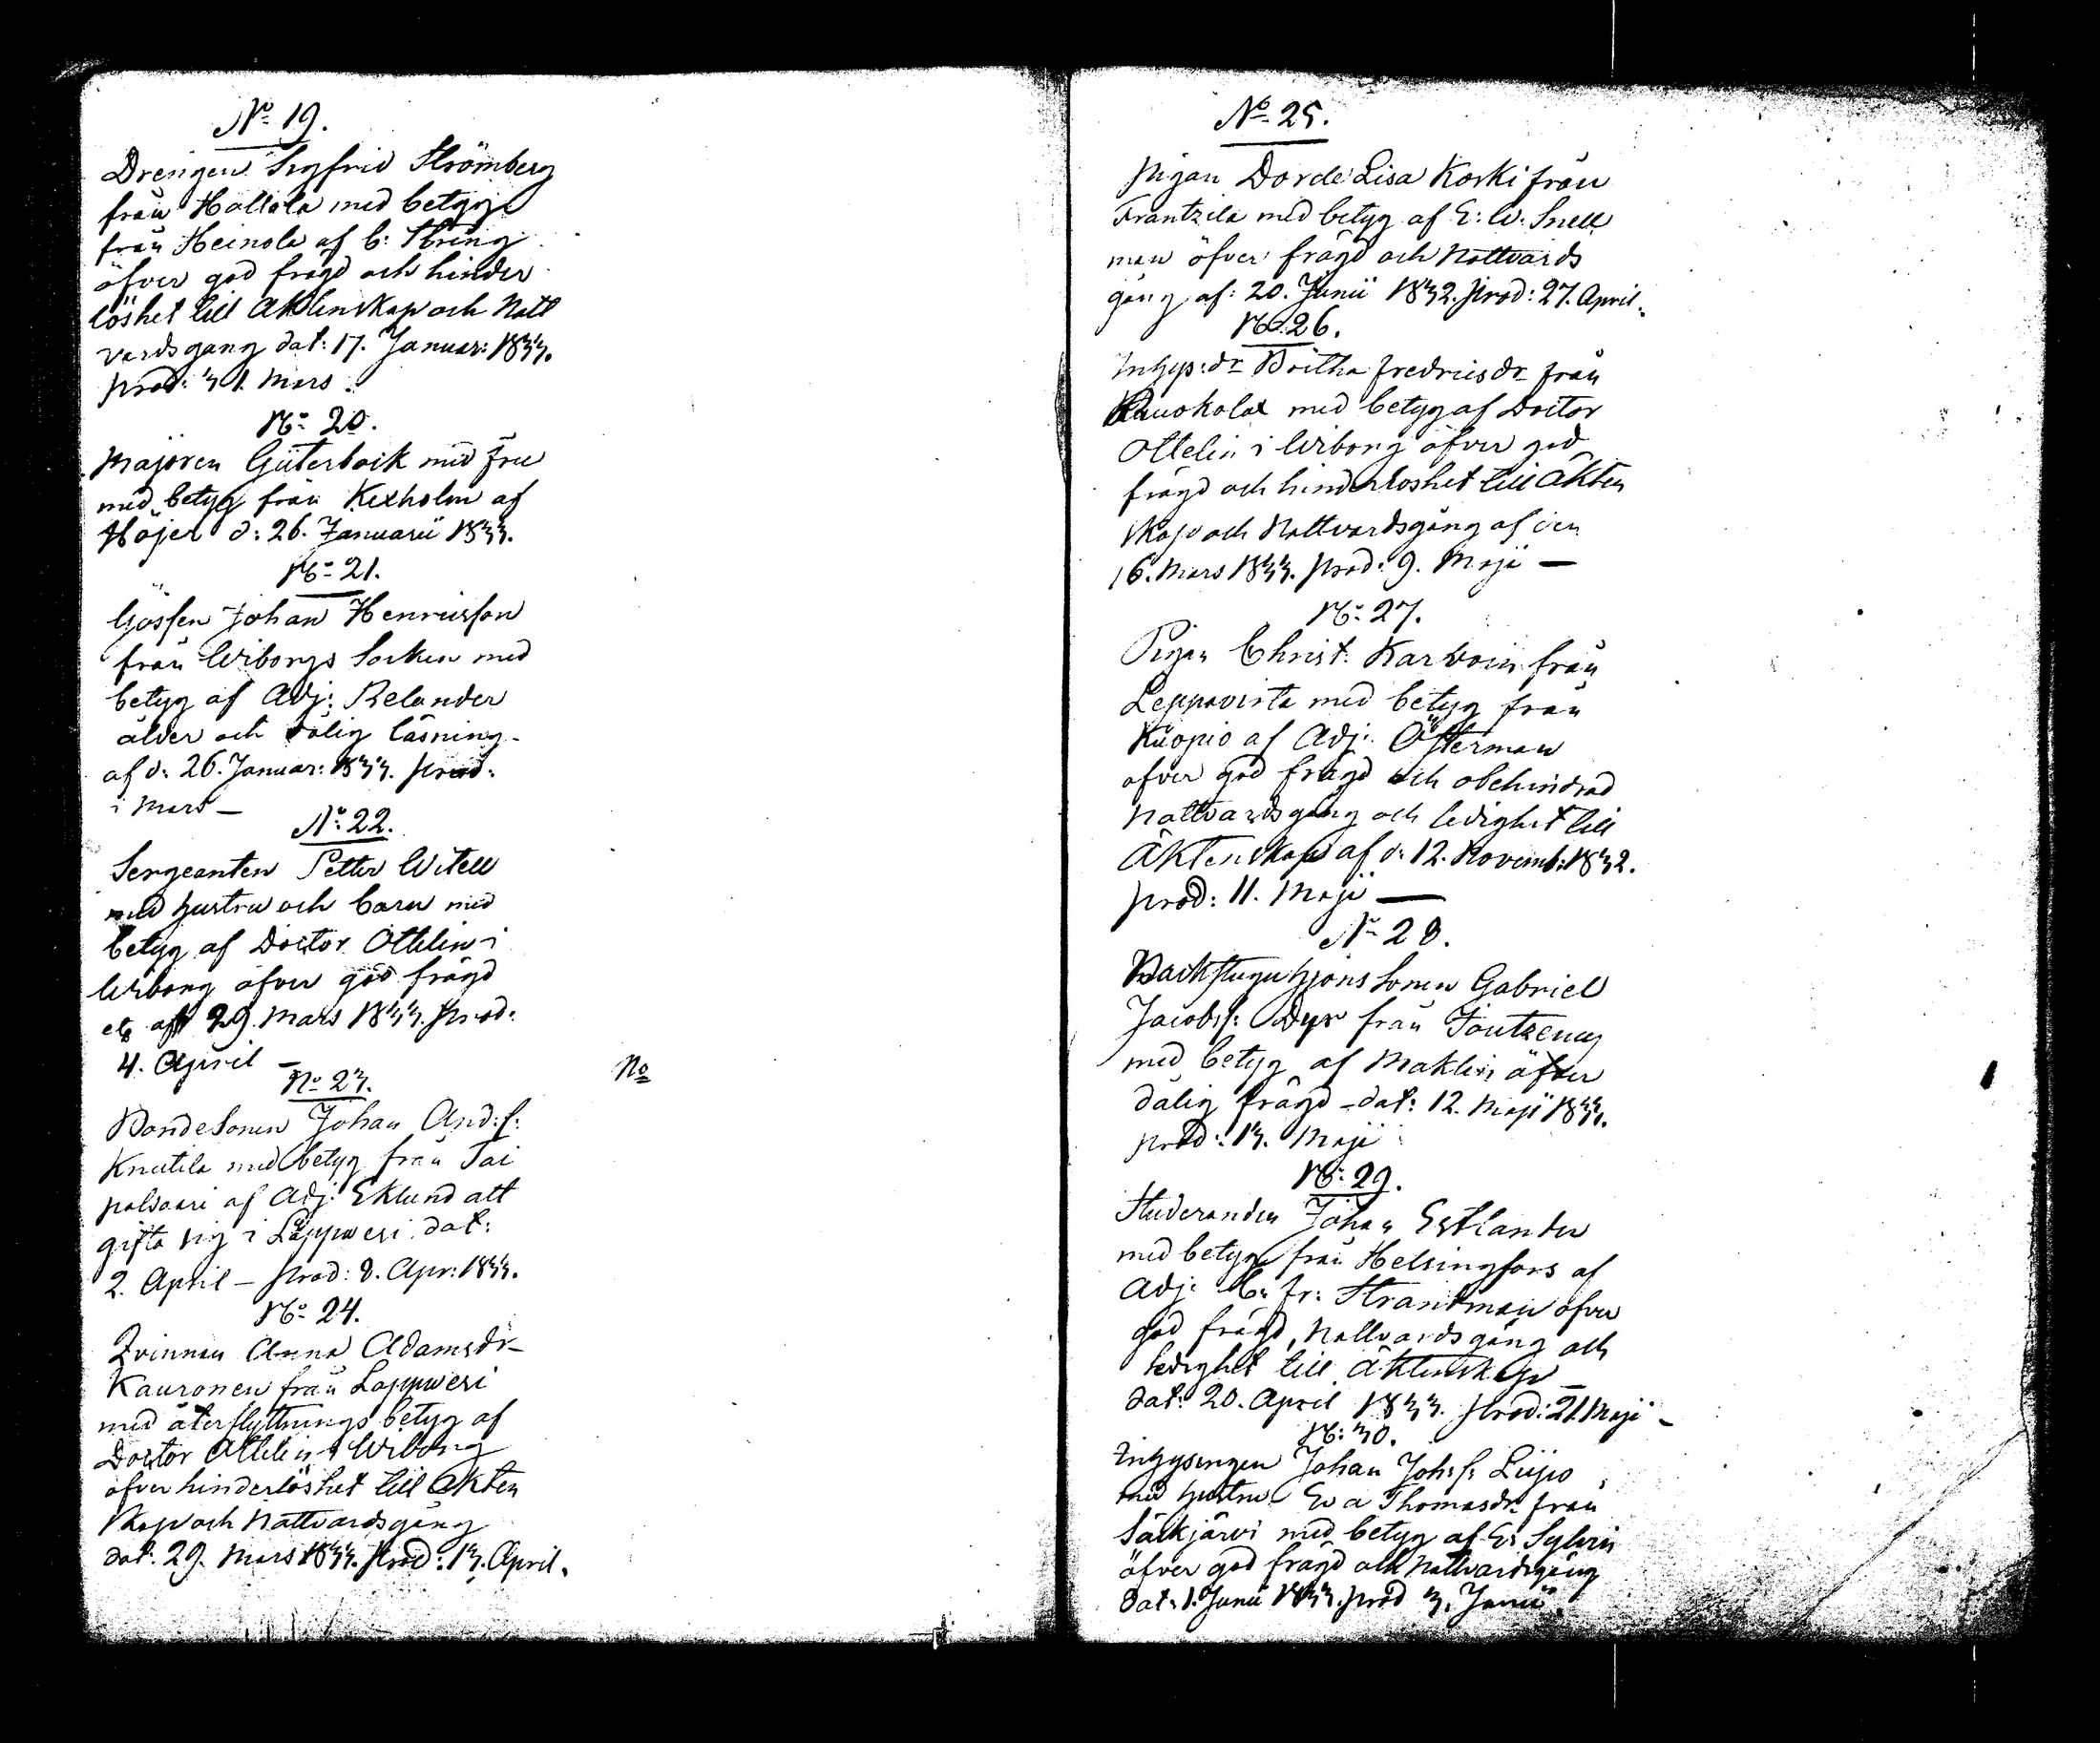 No 19.
Drengen Sigfrid Strömberg
från Hollola med betyg
från Heinola af C: Stréng
öfver god frägd och hinder
löshet till Aktenskap och Natt
vardsgang dat: 17. Januar: 1833.
prod: 31. Mars.
No 20.
Majoren Güterbock med fru
med betyg från Kexholm af
Höjer d: 26. Januarii 1833.
No 21.
Gossen Johan Henricsson
från Wiborgs Socken med
betyg af Adj: Relander
ålder och dålig läsning
af d: 26. Januar: 1833. prod:
i Mars –
No 22.
Sergeanten Petter Witell
med hustru och barn med
betyg af Doctor Ottelin i
Wiborg öfver god frägd
etc af 29. Mars 1833. prod:
4. April –
No 23.
Bondesonen Johan And:s:
Knutila med betyg från Tai
palsaari af Adj: Eklund att
gifta sig i Lappwesi dat:
2. April – prod: 8. Apr: 1833.
No 24.
Qvinnan Anna Adamsdr
Kauronen från Lappwesi
med återflyttnings betyg af
Doctor Ottelin i Wiborg
öfver hinderlöshet till Akten
skap och Nattvardsgång
dat: 29. Mars 1833. prod: 13. April.
No
No 25.
Pigan Dorde Lisa Koski från
Frantzila med betyg af E: W: Snell
man öfver frägd och Nattvards
gång af: 20. Junii 1832. prod: 27. April.
No 26.
Inhys:dr Britha Fredricsdr från
Rauokola med betyg af Doctor
Ottelin i Wiborg öfver god
frägd och hinderloshet till Äkten
skap och Nattvardsgång af den
16. Mars 1833. prod: 9. Maji –
No 27.
Pigan Christ: Karvoin från
Leppavirta med betyg från
Kuopio af Adj: Österman
öfver god frägd och obehindrad
Nattvardsgång och ledighet till
Äktenskap af d: 12. Novemb: 1832.
prod: 11. Maji —
No 28.
Backstuguhjons Sonen Gabriel
Jacobs: Dyr från Joutzeno
med betyg af Maklin öfver
dålig frägd – dat: 12. Maji 1833.
prod: 13. Maji
No 29.
Studeranden Johan Estlander
med betyg från Helsingfors af
Adj: C: Fr: Strandman öfver
god frägd, Nattvardsgång och
ledighet till Äktenskap –
dat: 20. April 1833. prod: 21. Maji –
No 30.
Inhysingen Johan Joh:s: Liipo
med hustru Eva Thomasdr från
Säckjärvi med betyg af E: Sylvin
öfver god frägd och Nattvardsgång
dat: 1. Junii 1833. prod 3. Junii